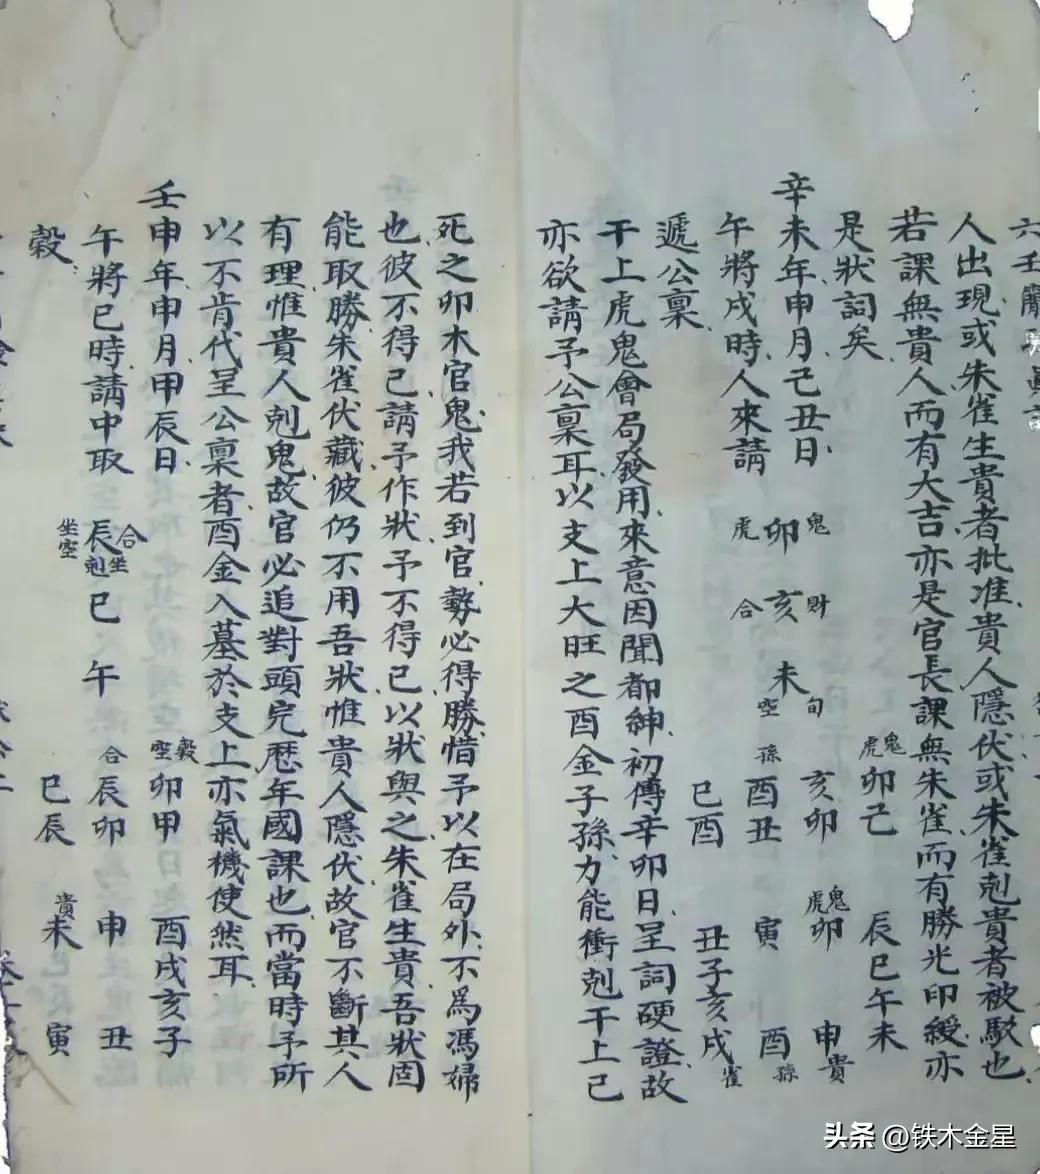 人出現或朱雀生貴者批准貴人隱伏或朱雀剋貴者被駁也
若課無貴人而有大吉亦是官長課無朱雀而有勝光印綬亦
是狀詞矣
辛未年申月己丑日
午將戌時人來請
遞公稟
鬼 卯 虎
財 亥 合
旬 未 空
鬼虎 卯己 辰巳午未
亥卯 鬼虎 卯 申貴
孫 酉丑 寅 酉孫
巳酉 丑子亥戌雀
干上虎鬼會局發用來意因聞都紳初傳辛卯日呈詞硬證故
亦欲請予公稟耳以支上大旺之酉金子孫力能衝剋干上已
死之卯木官鬼我若到官勢必得勝惜予以在局外不爲馮婦
也彼不得已請予作狀予不得已以狀與之朱雀生貴吾狀固
能取勝朱雀伏藏彼仍不用吾狀惟貴人隱伏故官不斷其人
有理惟貴人剋鬼故官必追對頭完歷年國課也而當時予所
以不肯代呈公稟者酉金入墓於支上亦氣機使然耳
壬申年申月甲辰日
午將巳時請中取
穀
合坐 辰剋 坐空
巳
午
穀空 卯甲 酉戌亥子
合 辰卯 申 丑
巳辰 貴未 寅